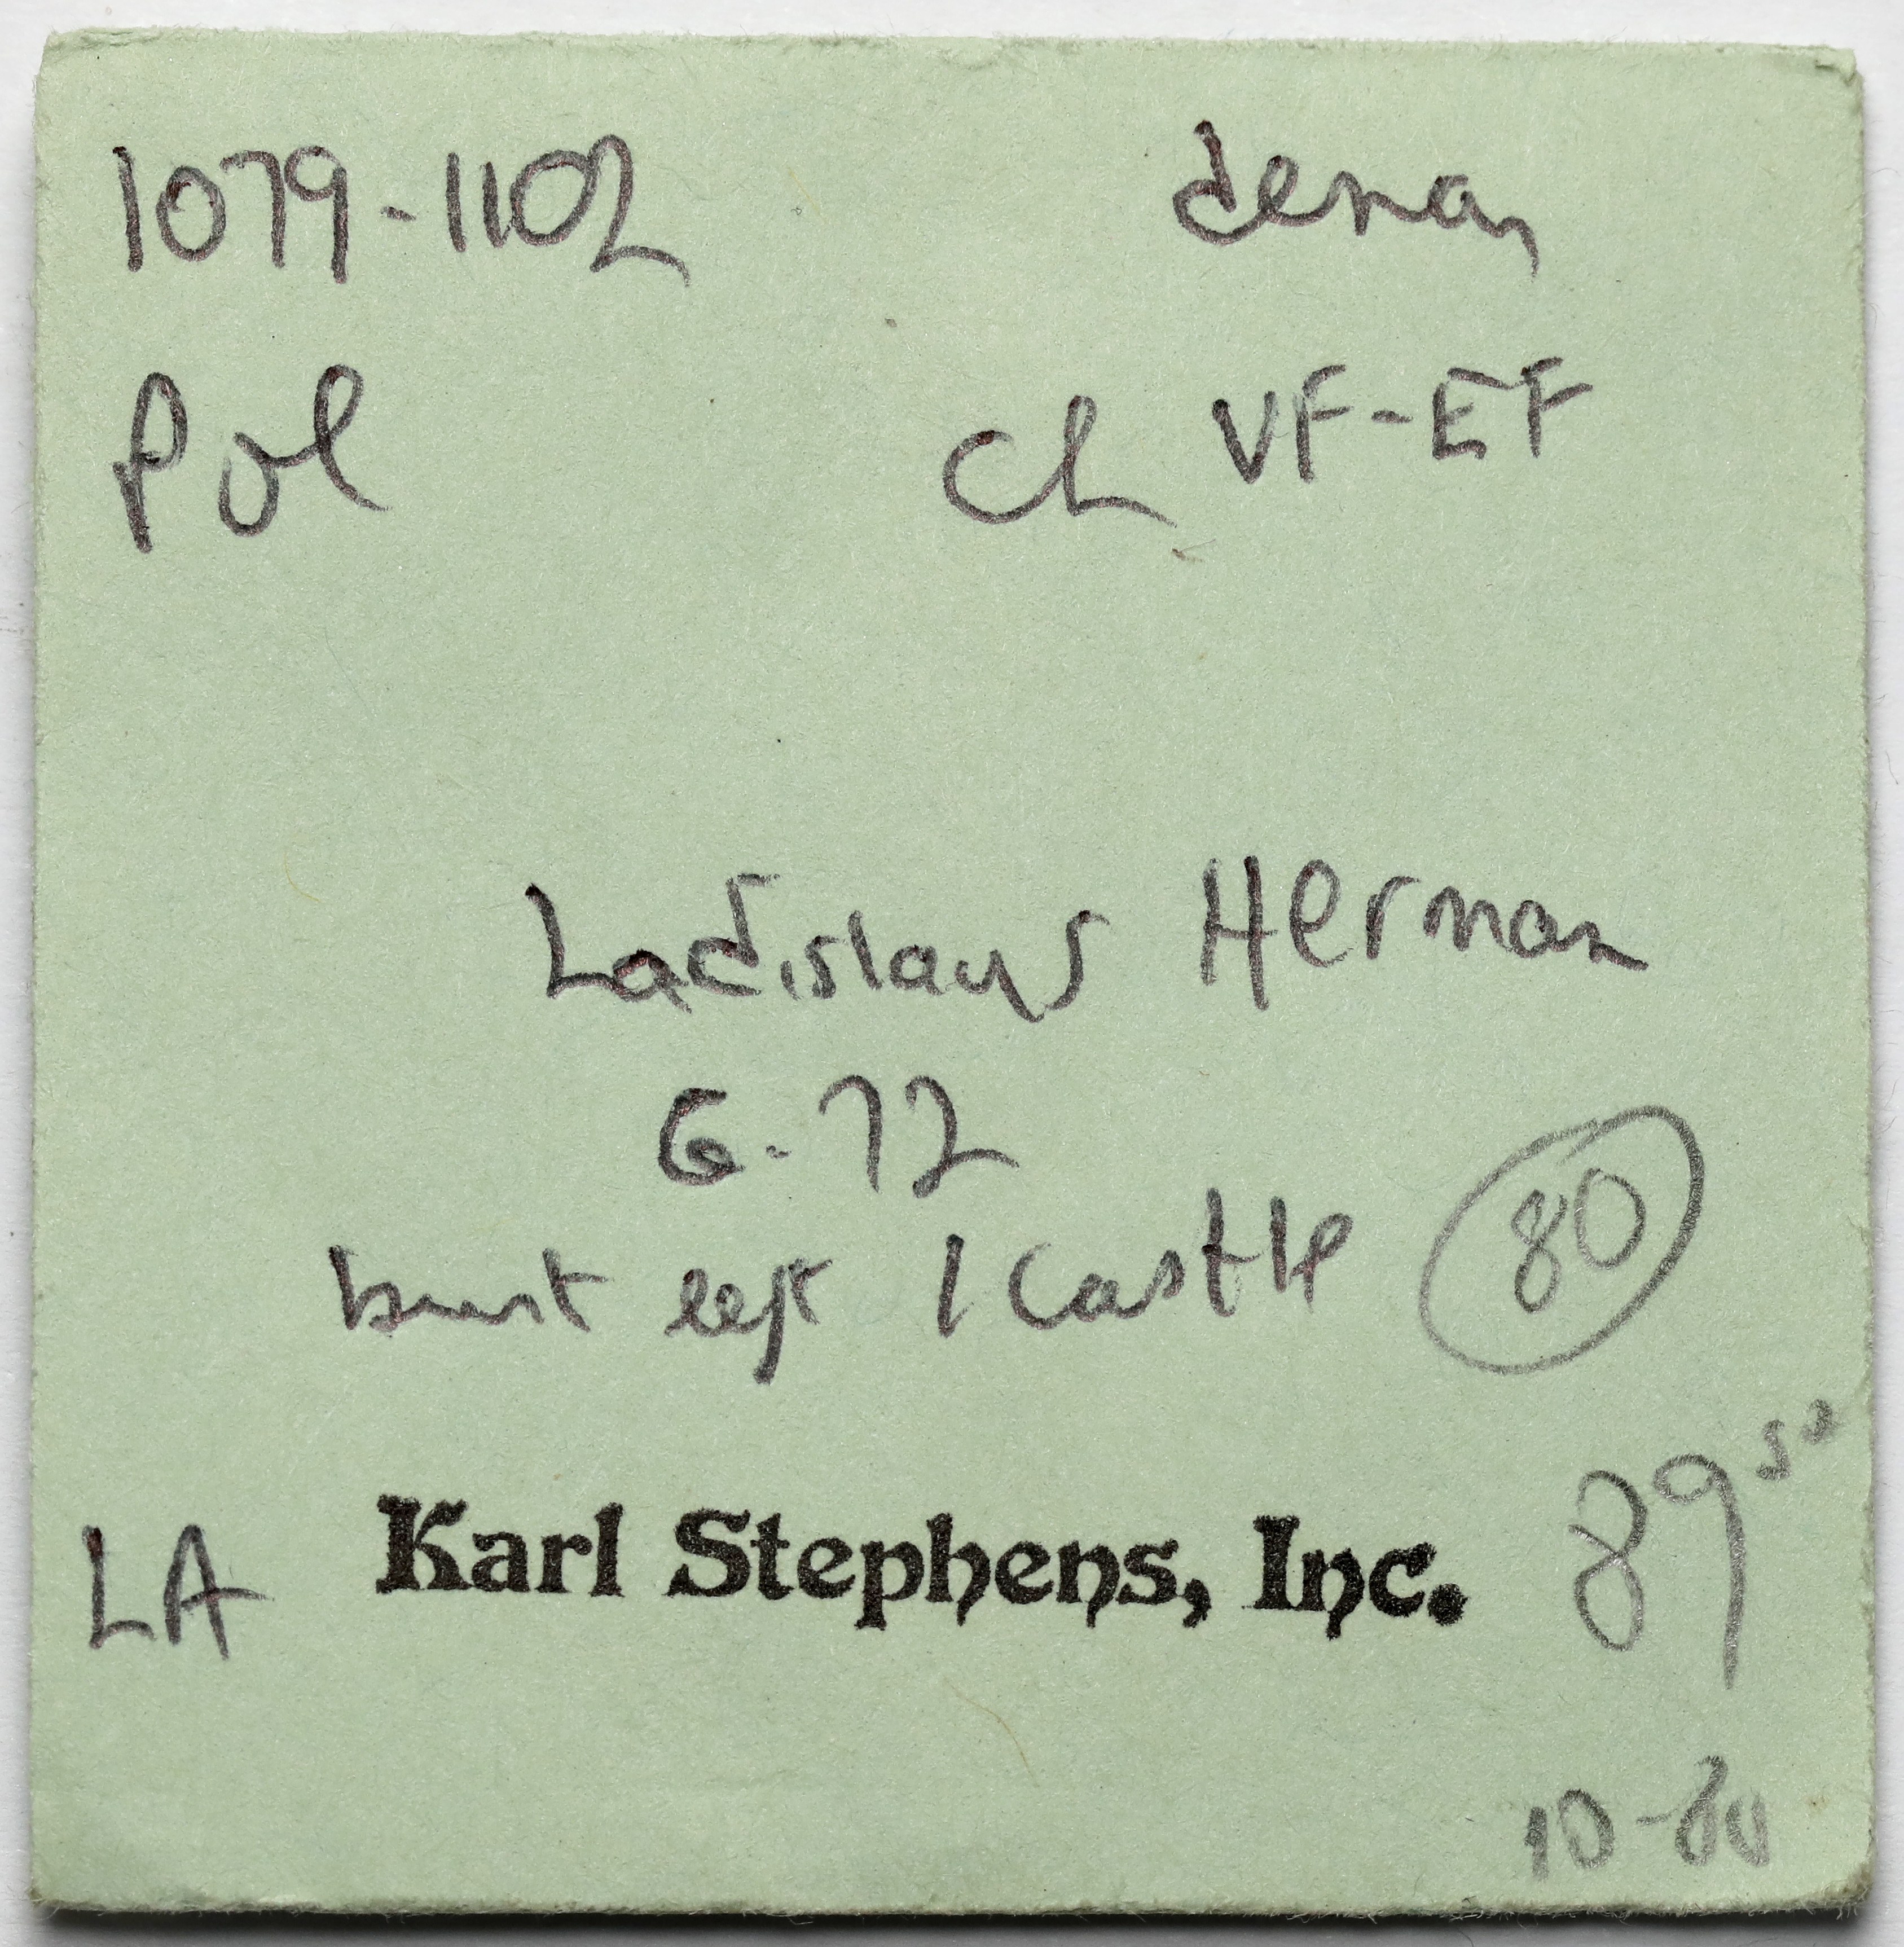 1079-1102 denar
Pol Ch VF-EF
Ladislaus Herman
G-72
bust left / Castle 80
89 50
LA Karl Stephens, Inc.
10-80